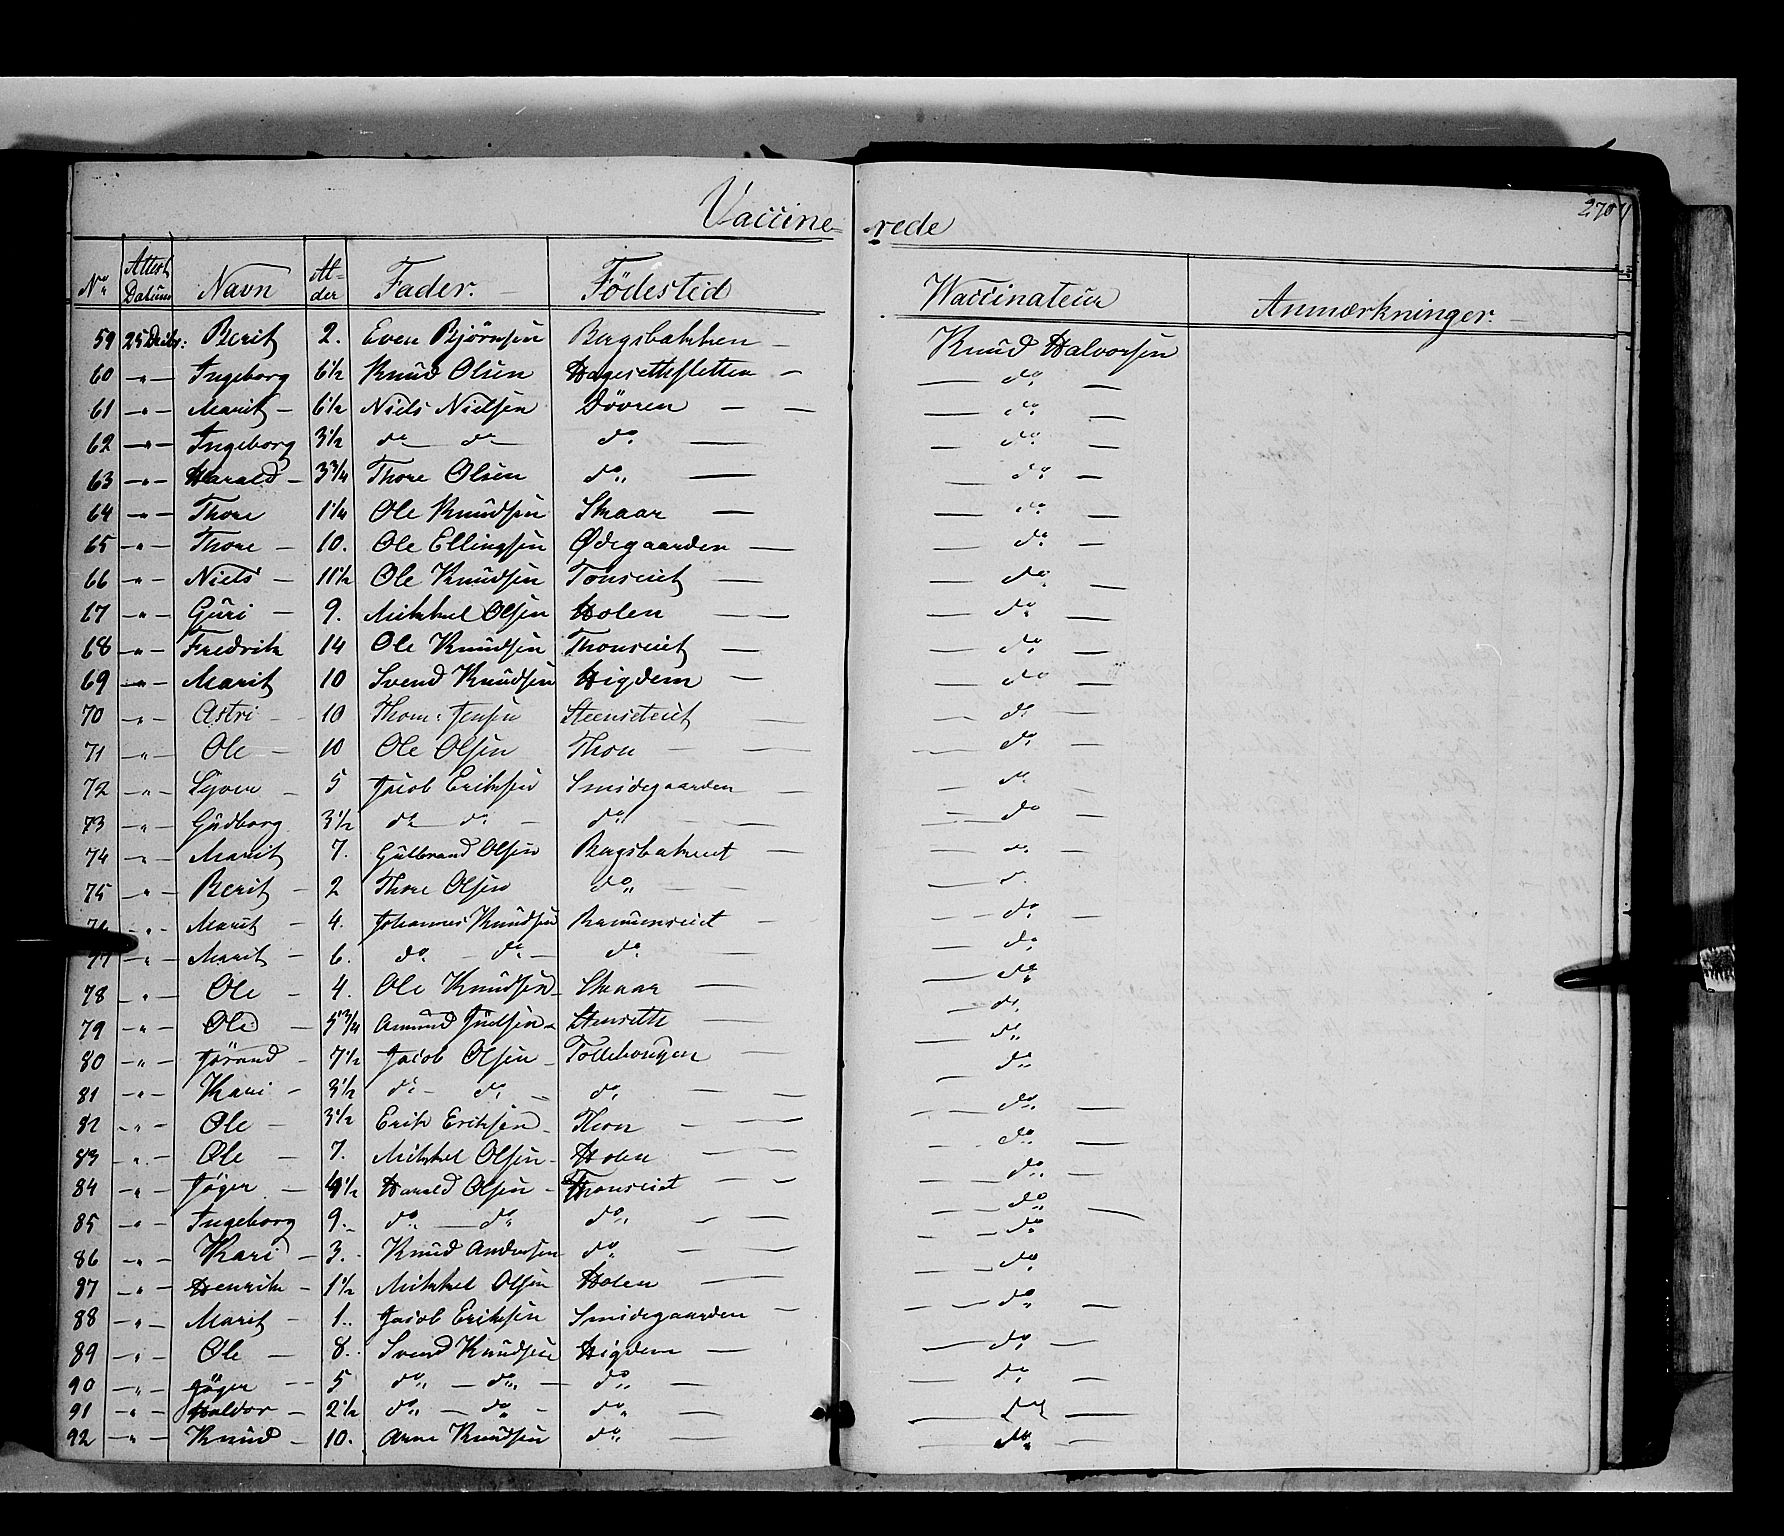 Vaccine-rede
270
No Attest Datum Navn Al-der Fader. Födested Vaccinateur Anmærkninger.
59 25 Decbr: Berit 2. Even Björnsen Bergsbakken — Knud Halvorsen
60 -"- Ingeborg 6½ Knud Olsen Hagesethsletten — do —
61 -"- Marit 6½ Niels Nielsen Dövren — — do —
62 -"- Ingeborg 3½ do do do — do —
63 -"- Harald 3¾ Thore Olsen do — do —
64 -"- Thore 1¼ Ole Knudsen Skaar — do —
65 -"- Thore 10. Ole Ellingsen Ødegaarden — do —
66 -"- Niels 11½ Ole Knudsen Tonseiet — do —
67 -"- Guri 9. Mikkel Olsen Holen — — do —
68 -"- Fredrik 14 Ole Knudsen Thonseiet — do —
69 -"- Marit 10 Svend Knudsen Higdem — do —
70 -"- Astri 10 Thom: Jensen Steenseteiet — do —
71 -"- Ole 10 Ole Olsen Thon — do —
72 -"- Syver 5 Jacob Eriksen Smidegaarden — do —
73 -"- Gudborg 3½ do do do — do —
74 -"- Marit 7. Gulbrand Olsen Bergsbakeiet — do —
75 -"- Berit 2 Thore Olsen do — do
76 -"- Marit 4. Johannes Knudsen — do —
77 -"- Marit 6. do do do — do
78 -"- Ole 4. Ole Knudsen Skaar — do
79 -"- Ole 5¾ Amund Stensette — do
80 -"- Jörand 7½ Jacob Olsen Tollehougen — do
81 -"- Kari 3½ do do do — do
82 -"- Ole 3½ Erik Eriksen Thon — do —
83 -"- Ole 7. Mikkel Olsen Holen — do —
84 -"- Jöger ½ Harald Olsen Thonseiet — do —
85 -"- Ingeborg 9. do do do — do —
86 -"- Kari 3. Knud Andersen do — do
87 -"- Henrik 1½ Mikkel Olsen Holen — do
88 -"- Marit 1. Jacob Eriksen Smidegaarden — do —
89 -"- Ole 8. Svend Knudsen Higdem — do —
90 -"- Jöger 5 do do do — do —
91 -"- Haldor 2½ do do do — do —
92 -"- Knud 10. Arne Knudsen do — do —